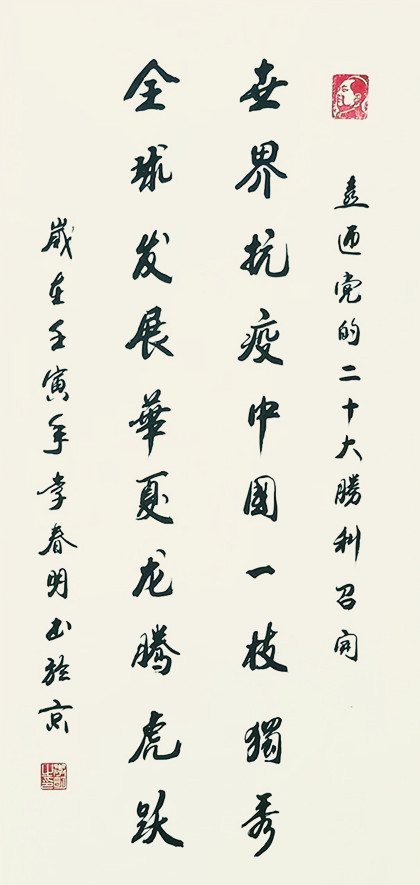 喜迎党的二十大勝利召開
世界抗疫中國一枝獨秀
全球发展華夏龙腾虎跃
歲在壬寅年李春明书於京